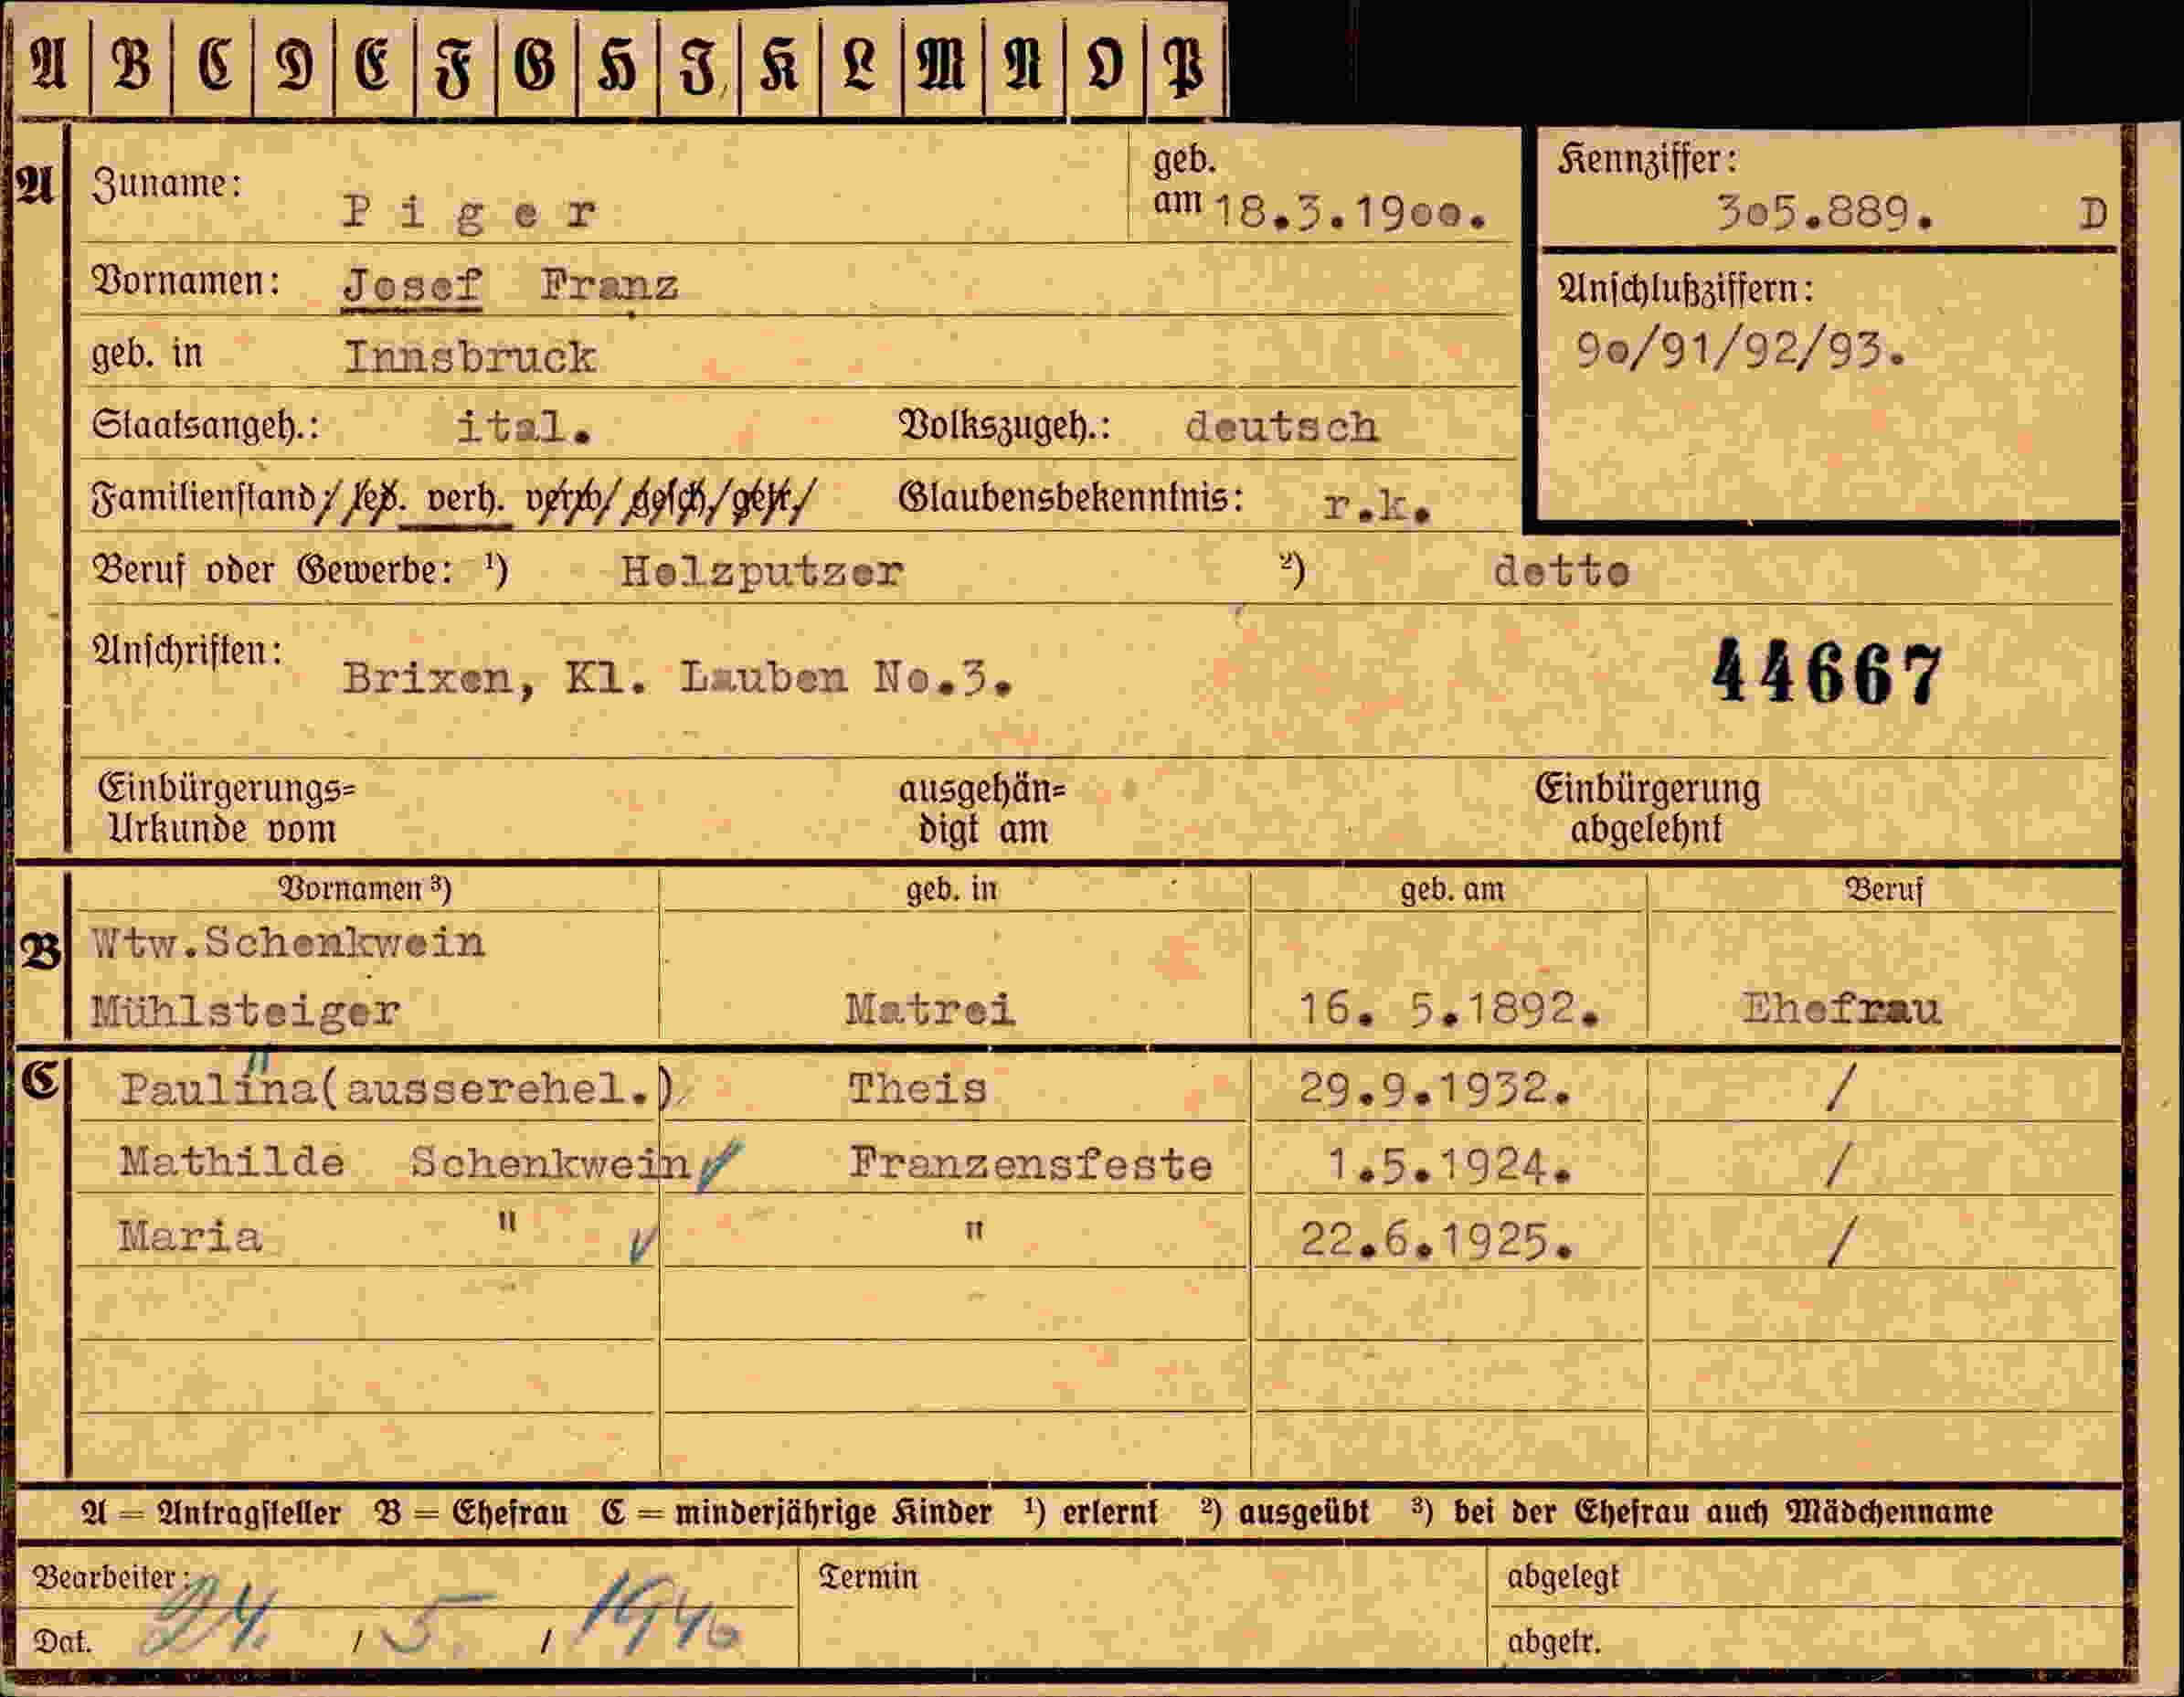 A B C D E F G H I K L M N O P
A Zuname: Piger geb. am 18.3.19oo. Kennziffer: 3o5.889. D
Vornamen: Josef Franz Anschlußziffern:
geb. in Innsbruck 9o/91/92/93.
Staatsangeh.: ital. Volkszugeh.: deutsch
Familienstand: led. verh. verw. gesch. getr. Glaubensbekenntnis: r.k.
Beruf oder Gewerbe: ¹) Holzputzer ²) detto
Anschriften: Brixen, Kl. Lauben No.3. 44667
Einbürgerungs= ausgehän= Einbürgerung
Urkunde vom digt am abgelehnt
Vornamen ³) geb. in geb. am Beruf
B Wtw.Schenkwein
Mühlsteiger Matrei 16. 5.1892. Ehefrau
C Paulina(ausserehel.) Theis 29.9.1932. /
Mathilde Schenkwein Franzensfeste 1.5.1924. /
Maria " " 22.6.1925. /
A = Antragsteller B = Ehefrau C = minderjährige Kinder ¹) erlernt ²) ausgeübt ³) bei der Ehefrau auch Mädchenname
Bearbeiter: Termin abgelegt
Dat. 24. / 5. / 1940 abgetr.